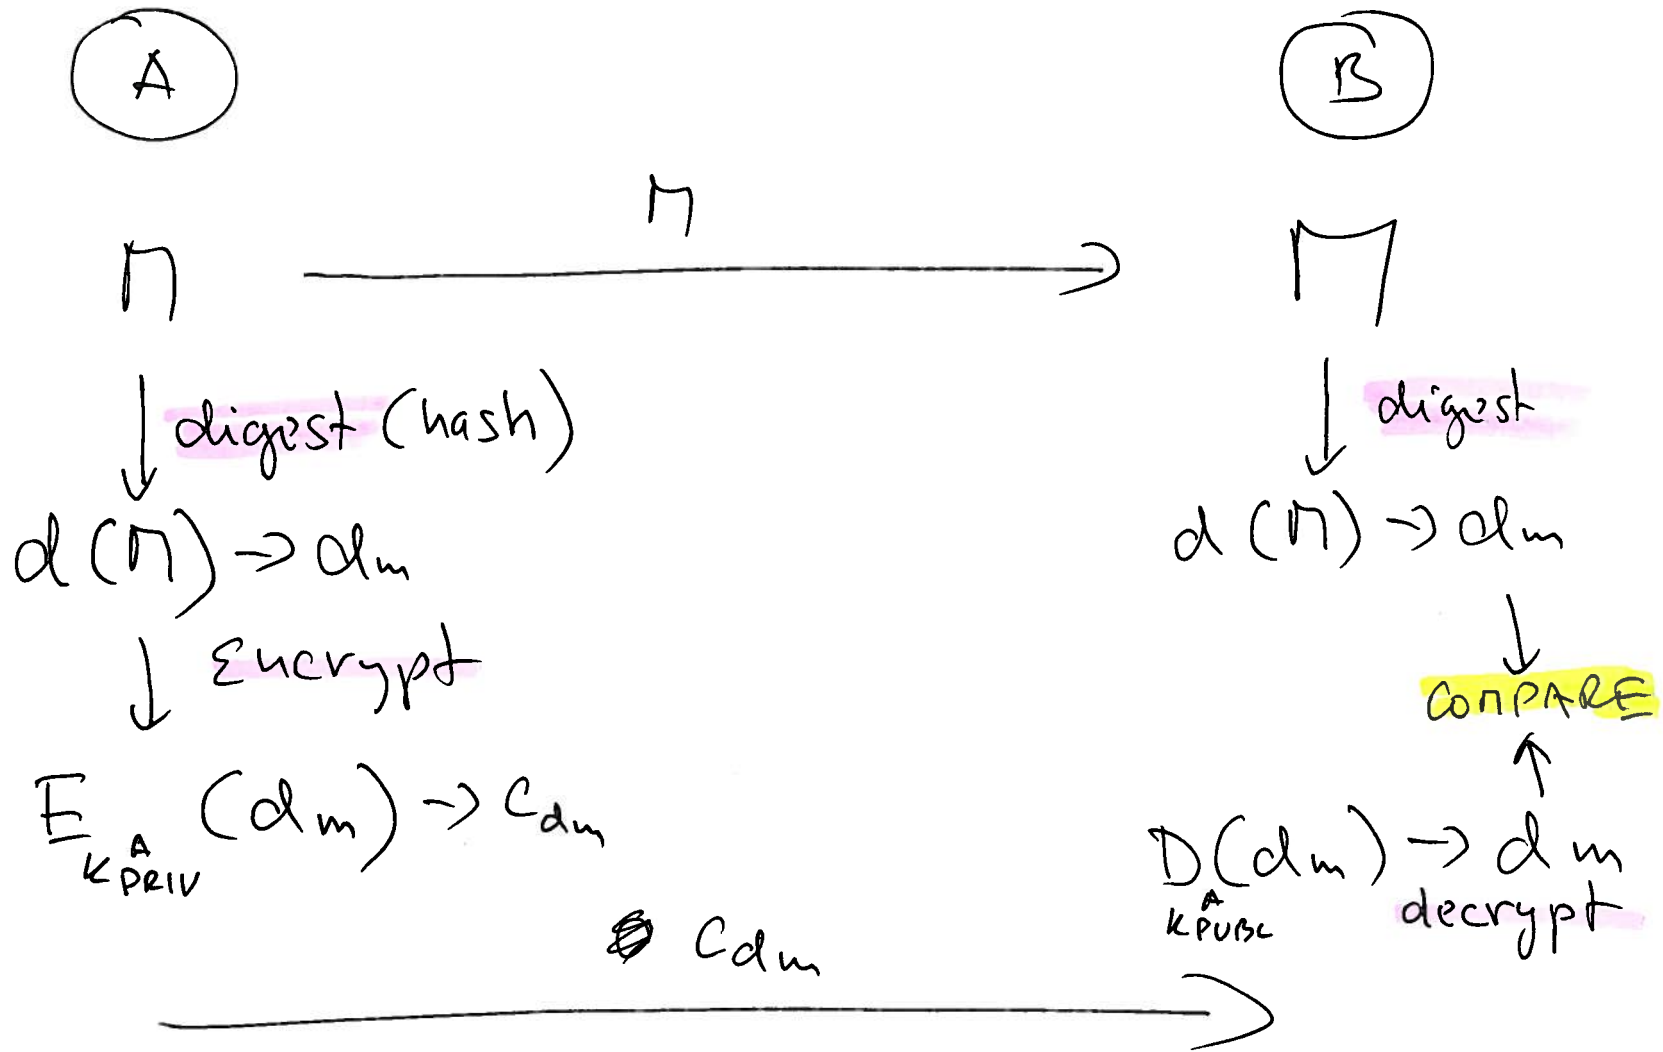 A
B
M
M
M
digest (hash)
digest
d(M) -> dm
d(M) -> dm
Encrypt
COMPARE
E K^A PRIV (dm) -> Cdm
D K^A PUBL (dm) -> dm
decrypt
Cdm